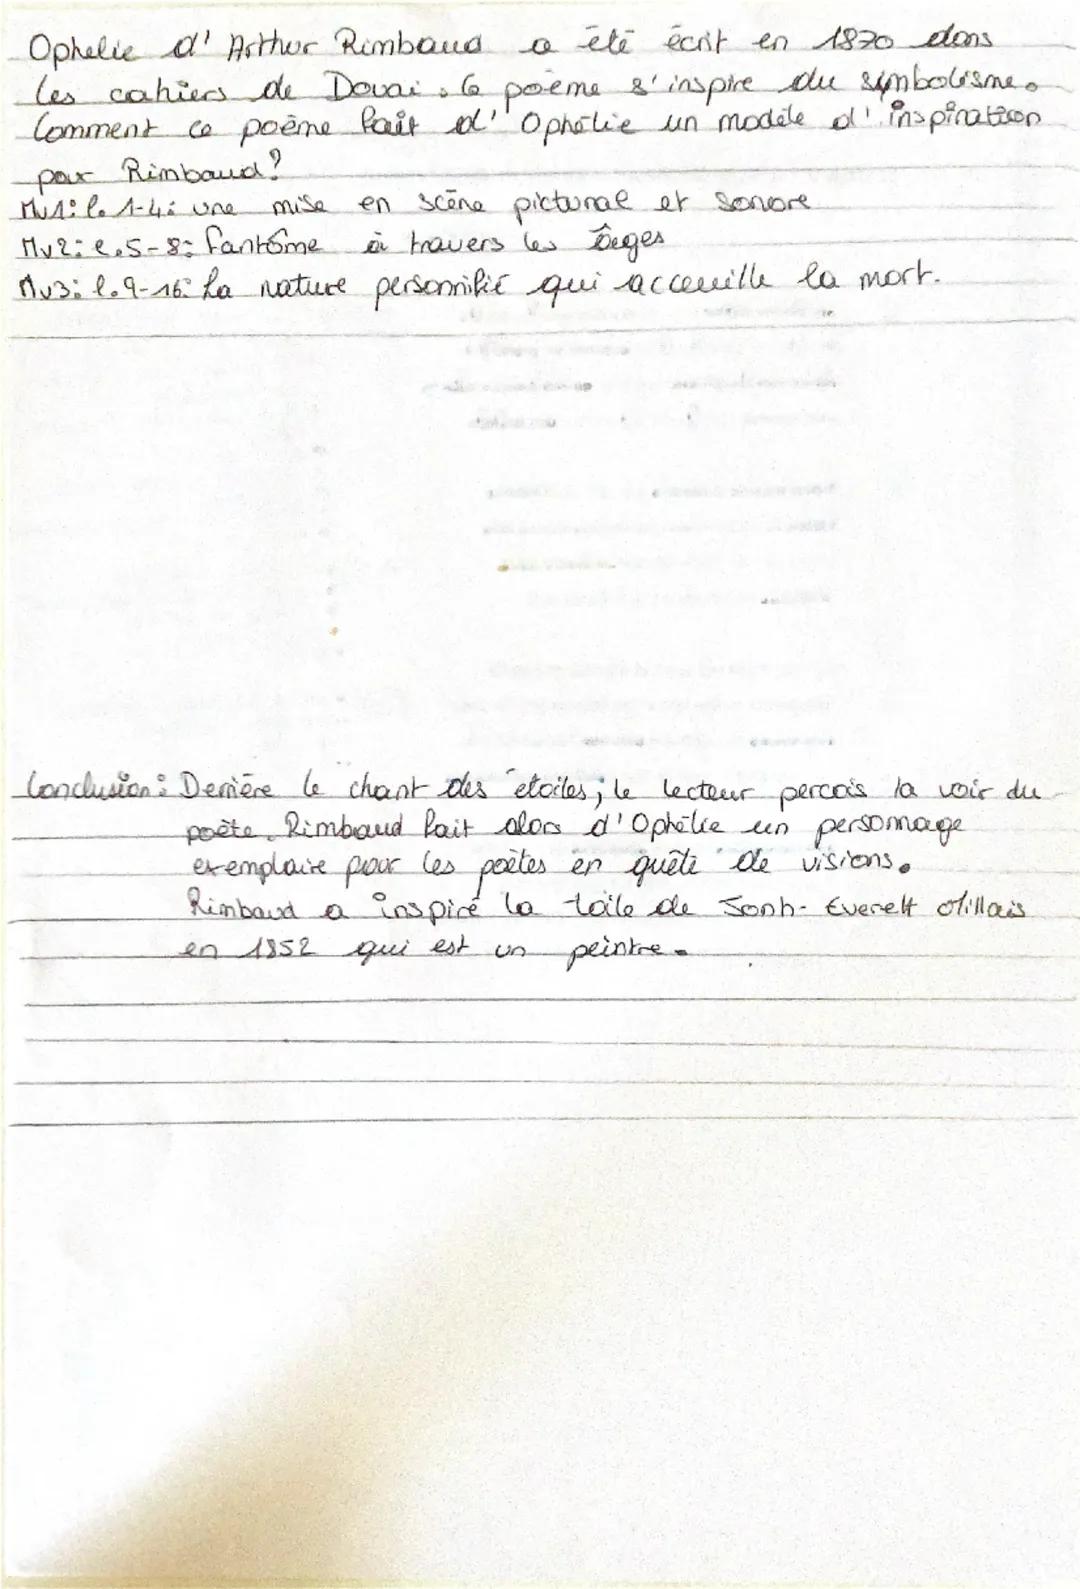 Ophelie d'Arthur Rimbaud a été écrit en 1870 dans
les cahiers de Douai. Le poème s'inspire du symbolisme.
Comment ce poème fait d'Ophélie un modèle d'inspiration
pour Rimbaud?
Mv1: l. 1-4: une mise en scène pictural et sonore
Mv2: l.5-8: fantôme à travers les âges
Mv3: l.9-16: La nature personnifié qui acceuille la mort.
Conclusion: Derrière le chant des étoiles, le lecteur percois la voix du
poète. Rimbaud fait alors d'Ophélie un personnage
exemplaire pour les poètes en quête de visions.
Rimbaud a inspiré la toile de Jonh-Everett Millais
en 1852 qui est un peintre.